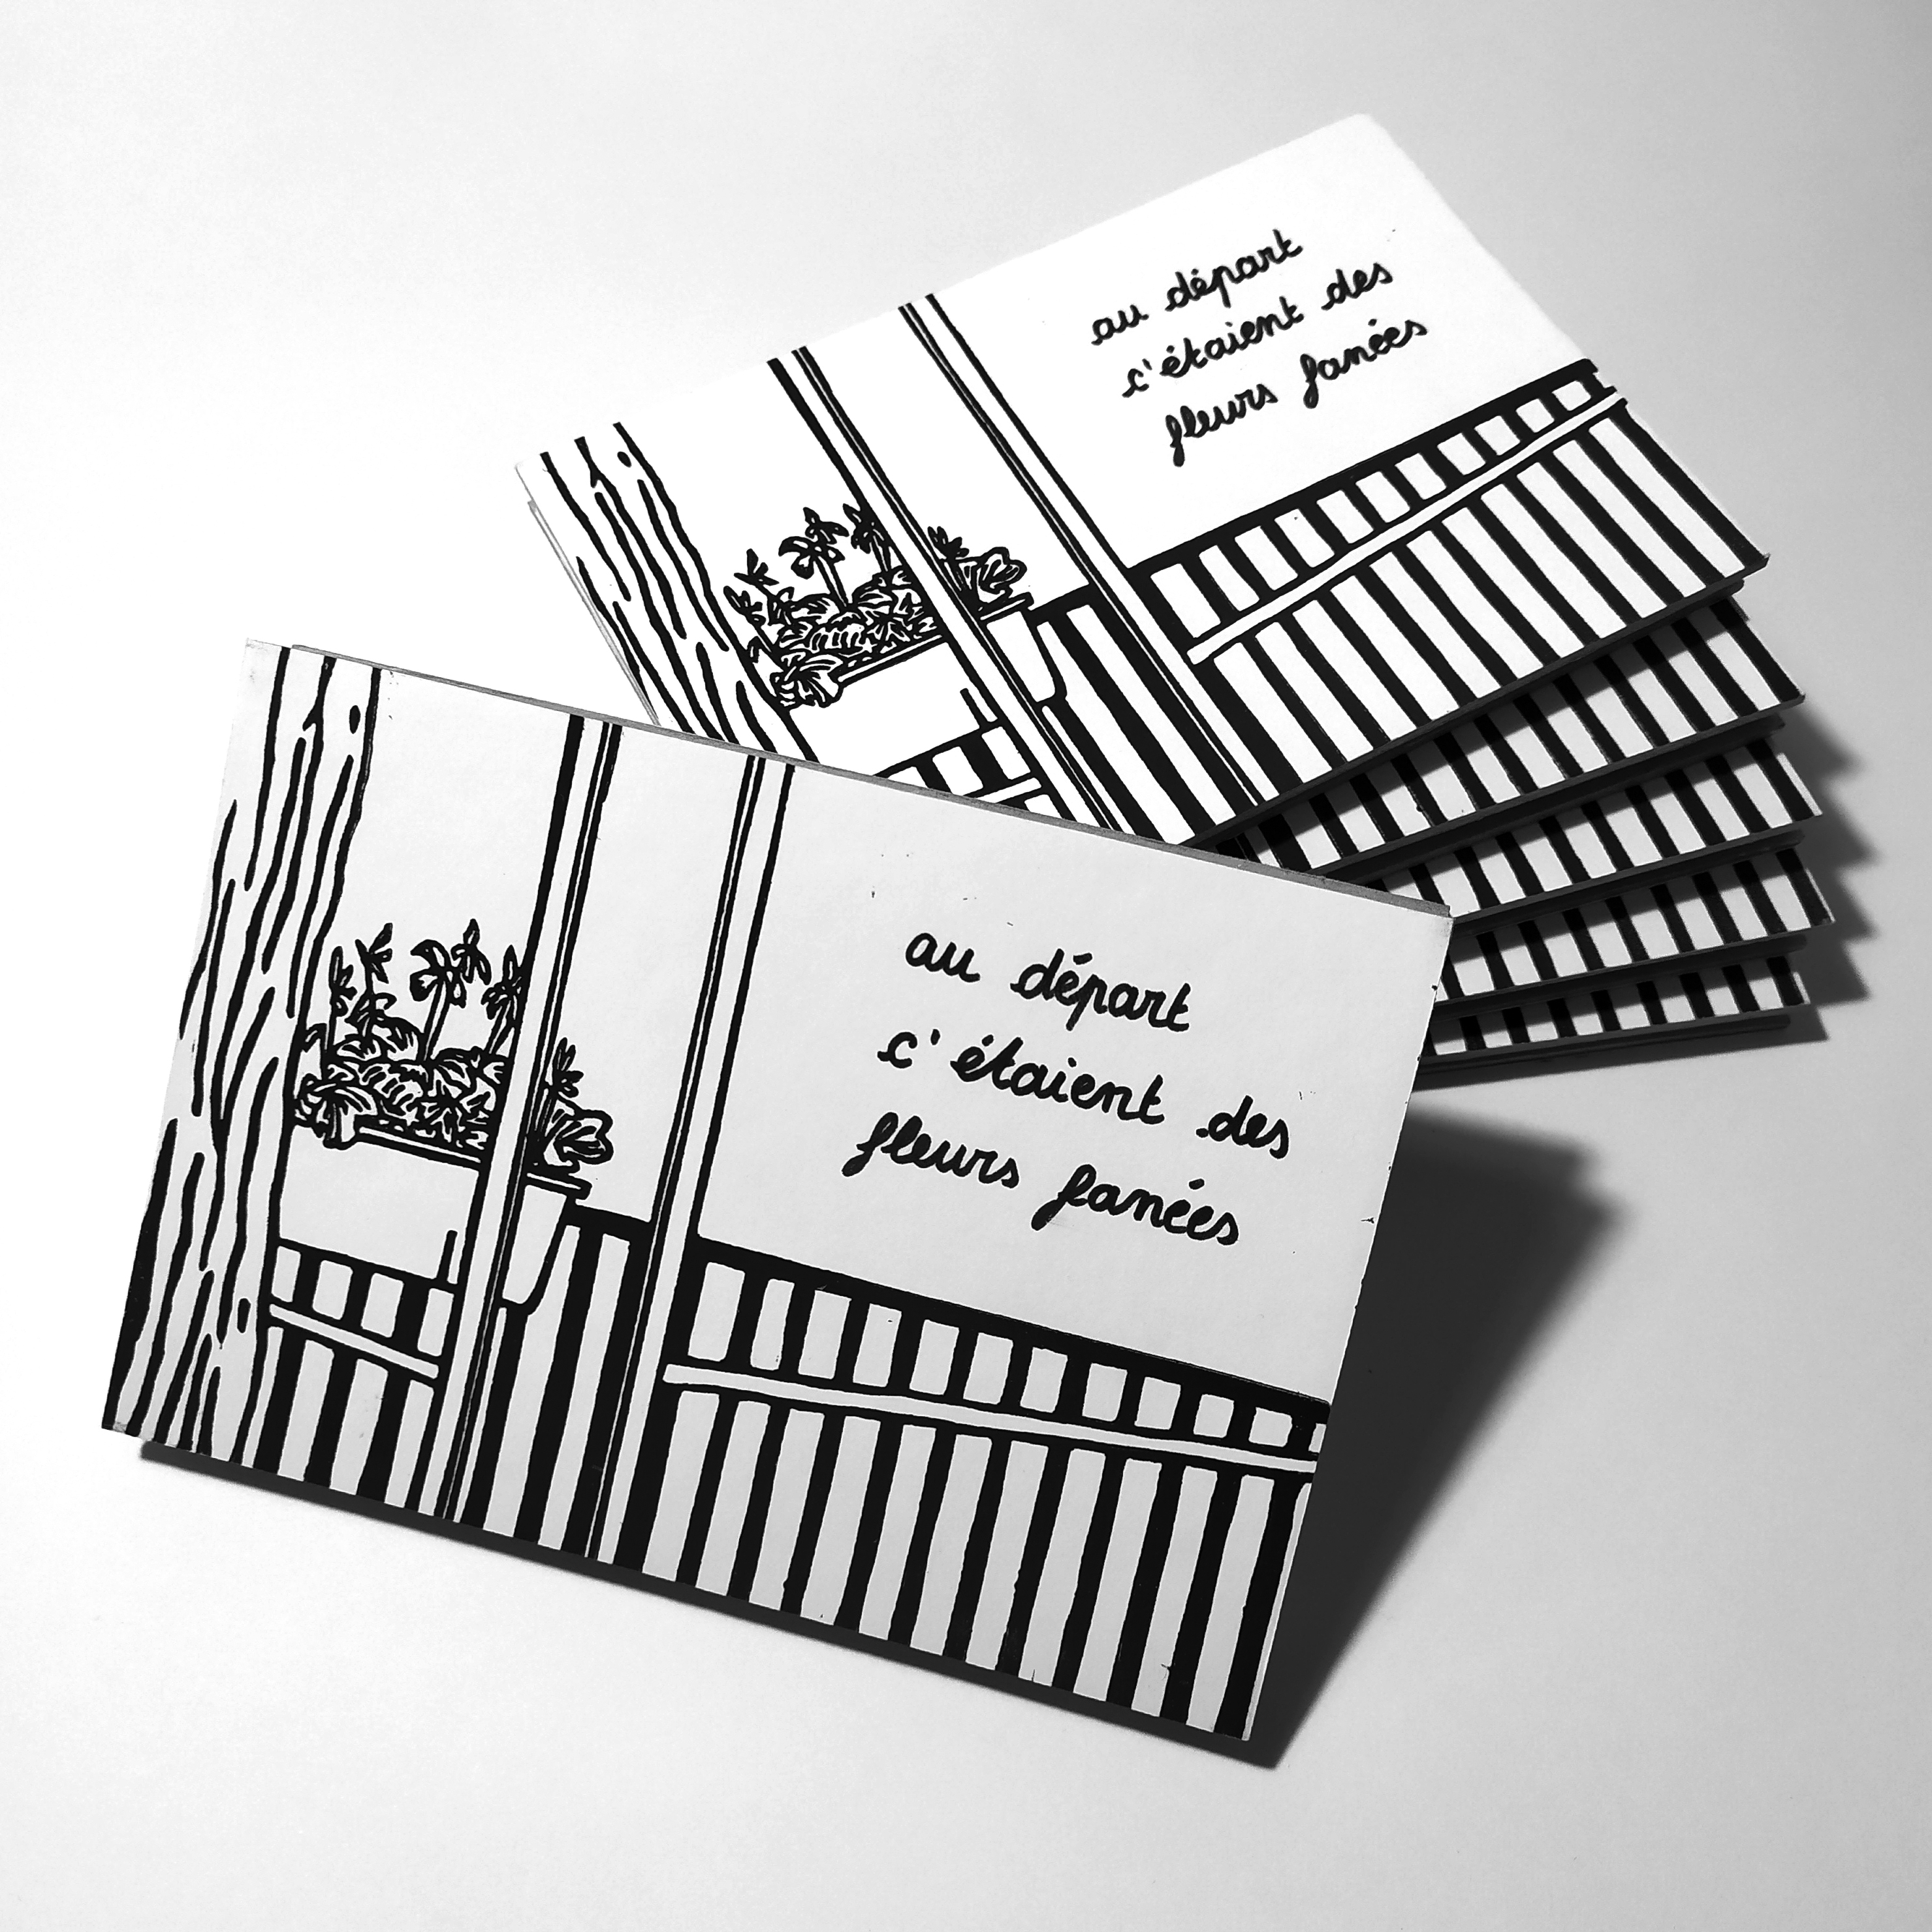 au départ
c'étaient des
fleurs fanées
au départ
c'étaient des
fleurs fanées